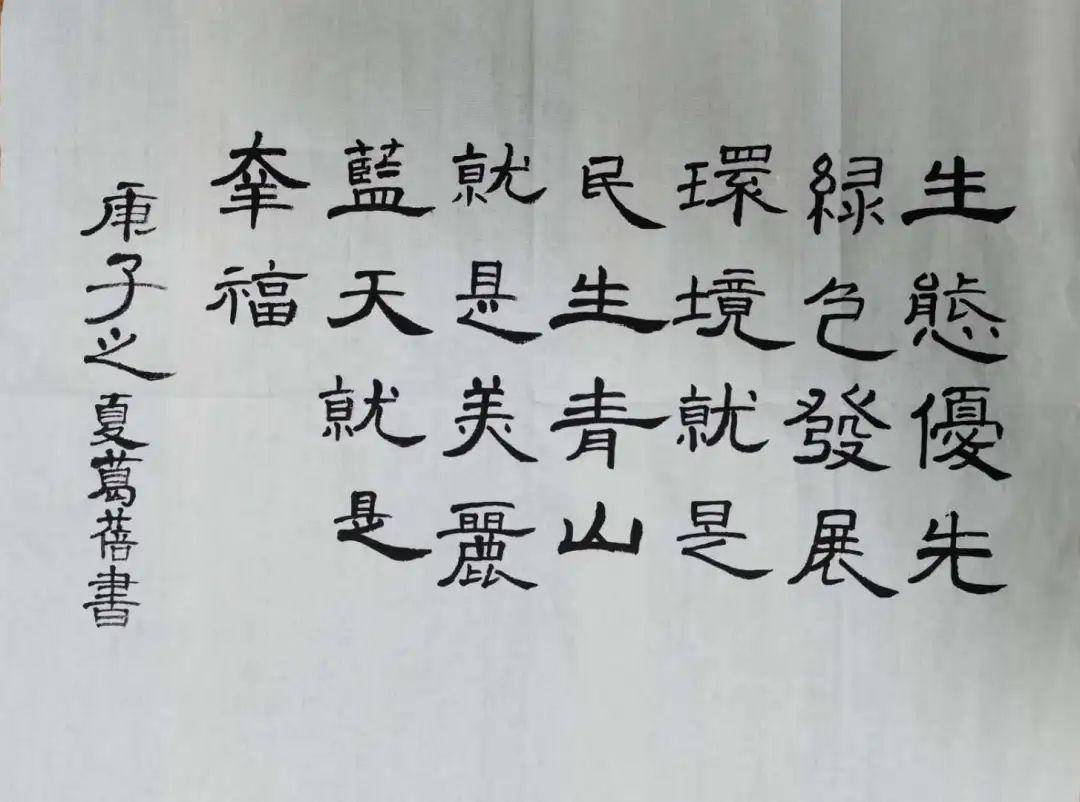 生態優先
緑色發展
環境就是
民生青山
就是美麗
藍天就是
幸福
庚子之夏葛蓓書